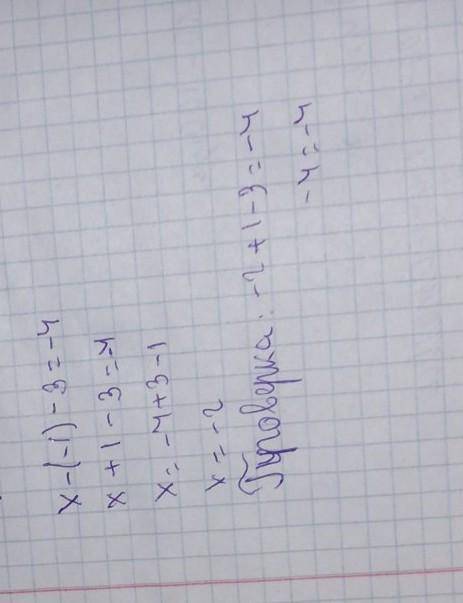 x-(-1)-3=-4
x+1-3=-4
x=-4+3-1
x=-2
Проверка: -2+1-3=-4
-4=-4